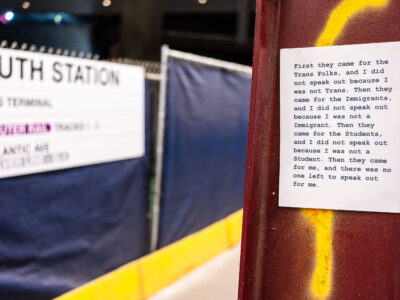 UTH STATION
D TERMINAL
UTER RAIL TRACKS 1-3
ANTIC AVE
First they came for the
Trans Folks, and I did
not speak out because I
was not Trans. Then they
came for the Immigrants,
and I did not speak out
because I was not a
Immigrant. Then they
came for the Students,
and I did not speak out
because I was not a
Student. Then they came
for me, and there was no
one left to speak out
for me.